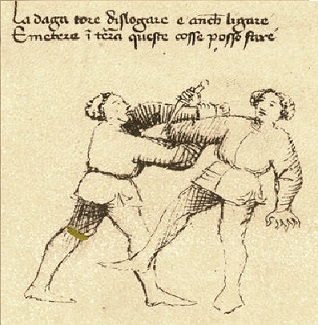 La daga tore dislogare e anch ligare
E metere ī tēra queste cosse posso fare